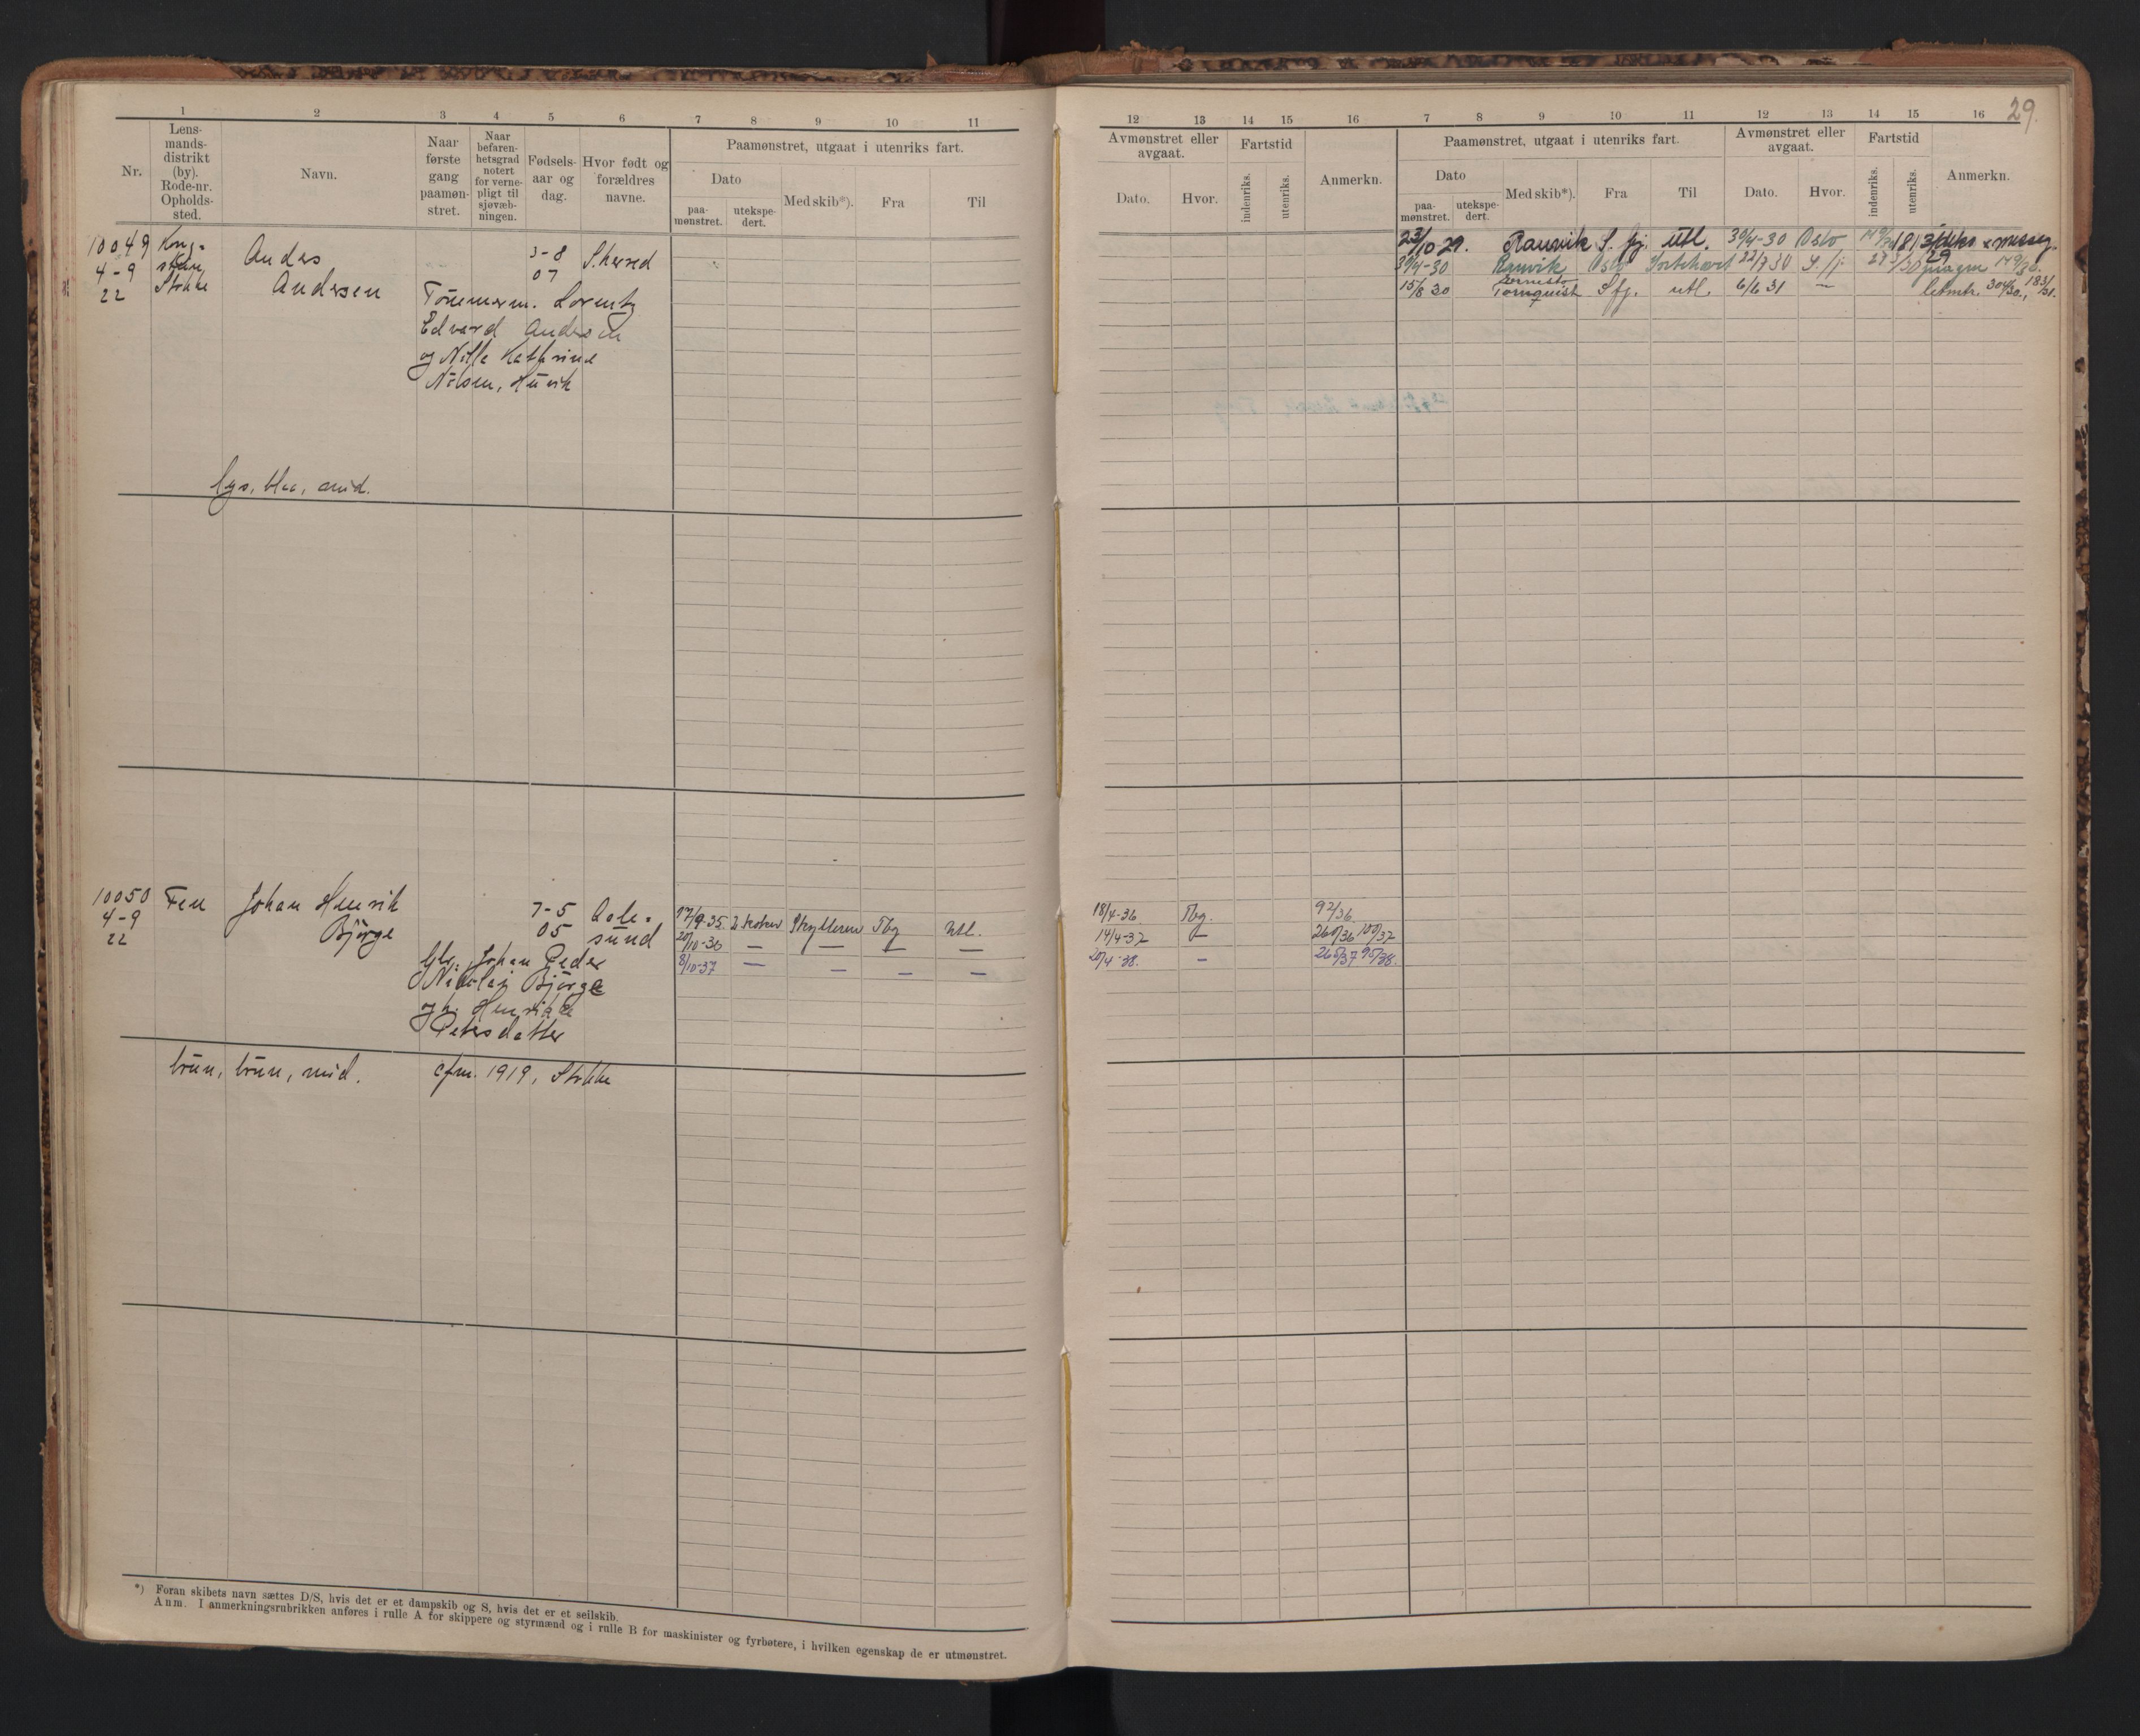 1 2 3 4 5 6 7 8 9 10 11
Nr.
Lens-
mands-
distrikt
(by).
Rode-nr.
Opholds-
sted.
Navn.
Naar
første
gang
paamøn-
stret.
Naar
befaren-
hetsgrad
notert
for verne-
pligt til
sjøvæb-
ningen.
Fødsels-
aar og
dag.
Hvor født og
forældres
navne.
Paamønstret, utgaat i utenriks fart.
Dato
paa-
mønstret.
utekspe-
dert.
Med skib*).
Fra
Til
10049
4-9
22
Stokke
Anders
Andersen
3-8
07
S.herred
Tömmerm. Lorentz
Edvard Andersen
og Nilla Kathrine
Nilsen, Husvik
lys, blaa, mid.
10050 Fen Johan Henrik 7-5 Aale- 17/9-35 Skytteren Tbg Utl.
4-9 Björge 05 sund 20/10-36 — — — —
22 8/10-37 — — — —
Johan Peder
Nikolai Björge
og h. Henrikke
Petersdatter
brun, brun, mid. cfm. 1919, Stokke
*) Foran skibets navn sættes D/S, hvis det er et dampskib og S, hvis det er et seilskib.
Anm. I anmerkningsrubrikken anføres i rulle A for skippere og styrmænd og i rulle B for maskinister og fyrbøtere, i hvilken egenskap de er utmønstret.
12 13 14 15 16 7 8 9 10 11 12 13 14 15 16
29.
Avmønstret eller
avgaat.
Dato.
Hvor.
Fartstid
indenriks.
utenriks.
Anmerkn.
Paamønstret, utgaat i utenriks fart.
Dato
paa-
mønstret.
utekspe-
dert.
Med skib*).
Fra
Til
Avmønstret eller
avgaat.
Dato.
Hvor.
Fartstid
indenriks.
utenriks.
Anmerkn.
23/10 29. Ranvik S. fj. utl. 30/4-30 Oslo
30/4-30 Ranvik Oslo 22/7 30 S. fj.
15/8 30 Tornquist S fj. utl. 6/6 31 —
18/4-36 Tbg. 92/36
14/4-37 — 260/36 100/37
20/4-38. — 265/37 95/38.